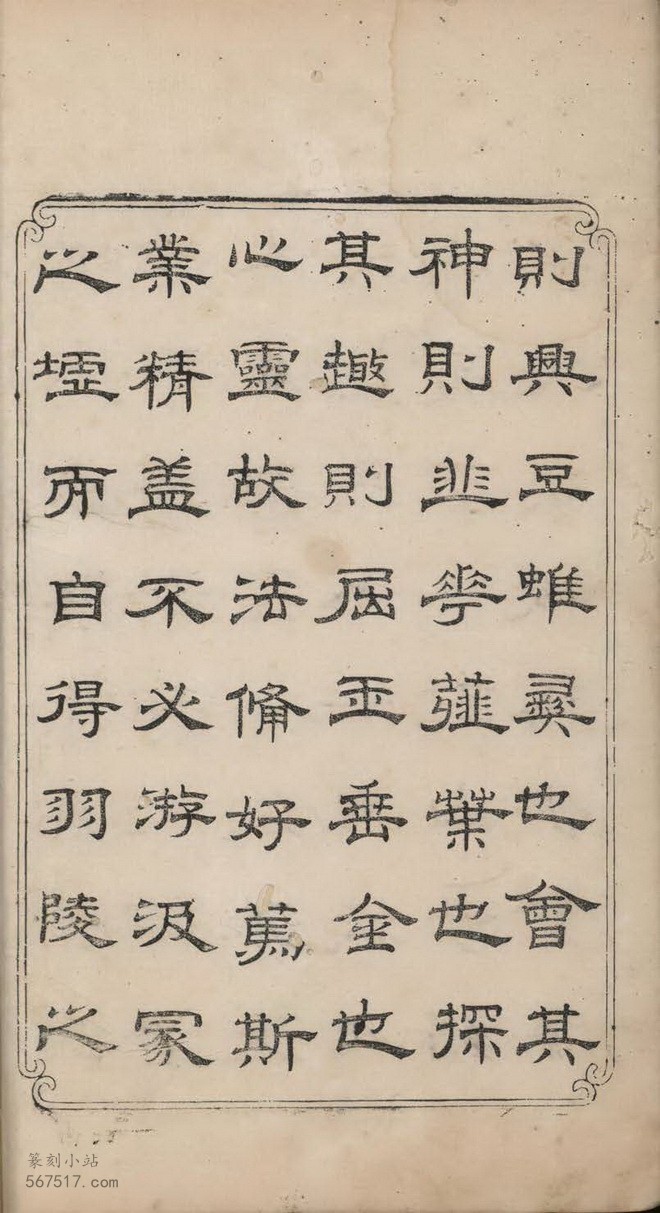 則興豆蜼彛也會其
神則韭花薤葉也探
其趣則屈玉垂金也
心靈故法備好篤斯
業精盖不必游汲冢
之壚而自得羽陵之
篆刻小站
567517.com